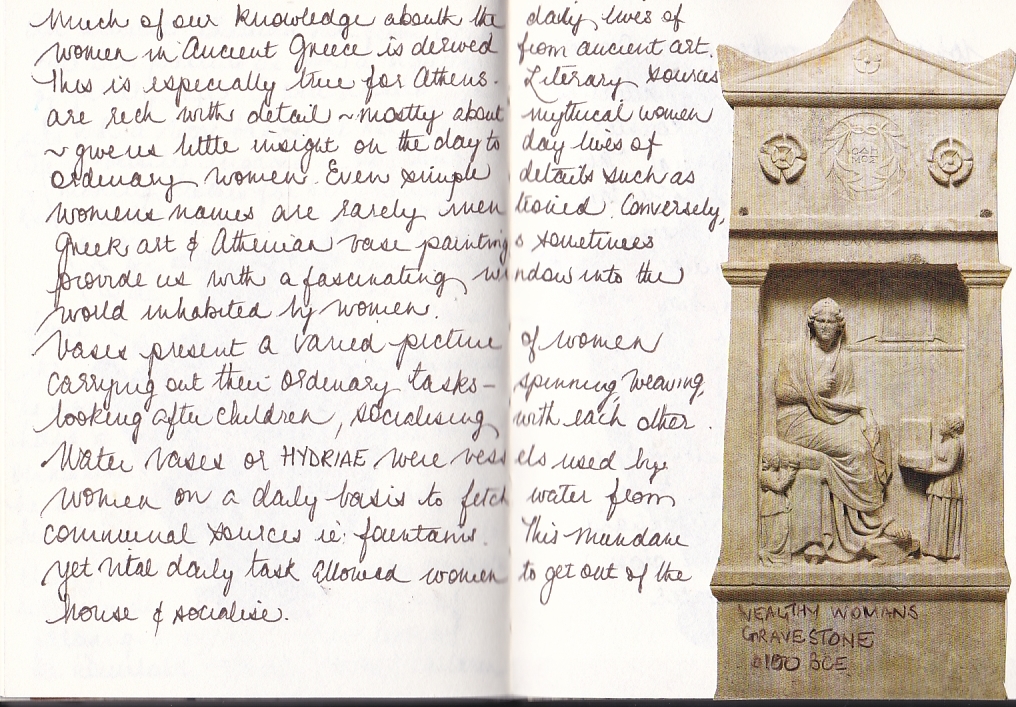 Much of our knowledge about the daily lives of
women in Ancient Greece is derived from ancient art.
This is especially true for Athens. Literary sources
are rich with detail ~ mostly about mythical women
~ give us little insight on the day to day lives of
ordinary women. Even simple details such as
womens names are rarely mentioned. Conversely,
Greek art & Athenian vase paintings sometimes
provide us with a fascinating window into the
world inhabited by women.
Vases present a varied picture of women
carrying out their ordinary tasks – spinning, weaving,
looking after children, socialising with each other.
Water vases or HYDRIAE were vessels used by
women on a daily basis to fetch water from
communal sources ie: fountains. This mundane
yet vital daily task allowed women to get out of the
house & socialise.
ΟΔΗ
ΜΟΣ
WEALTHY WOMANS
GRAVESTONE
BCE